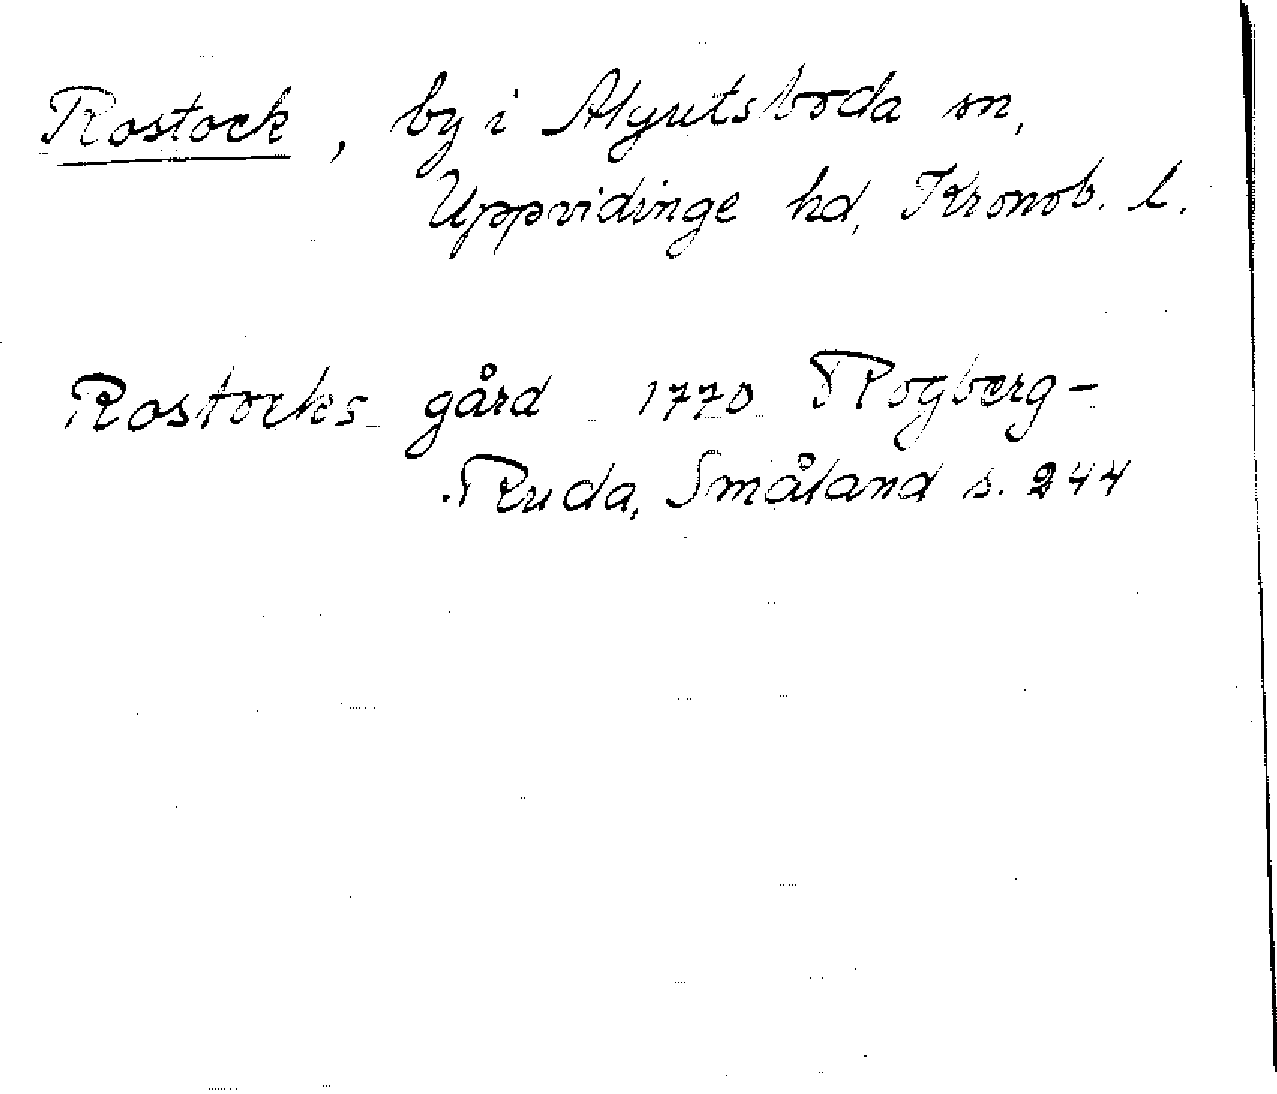 Rostock, by i Älgutsboda sn,
Uppvidinge hd, Kronob. l.
Rostocks gård 1770 Rogberg-
Ruda, Småland s. 244